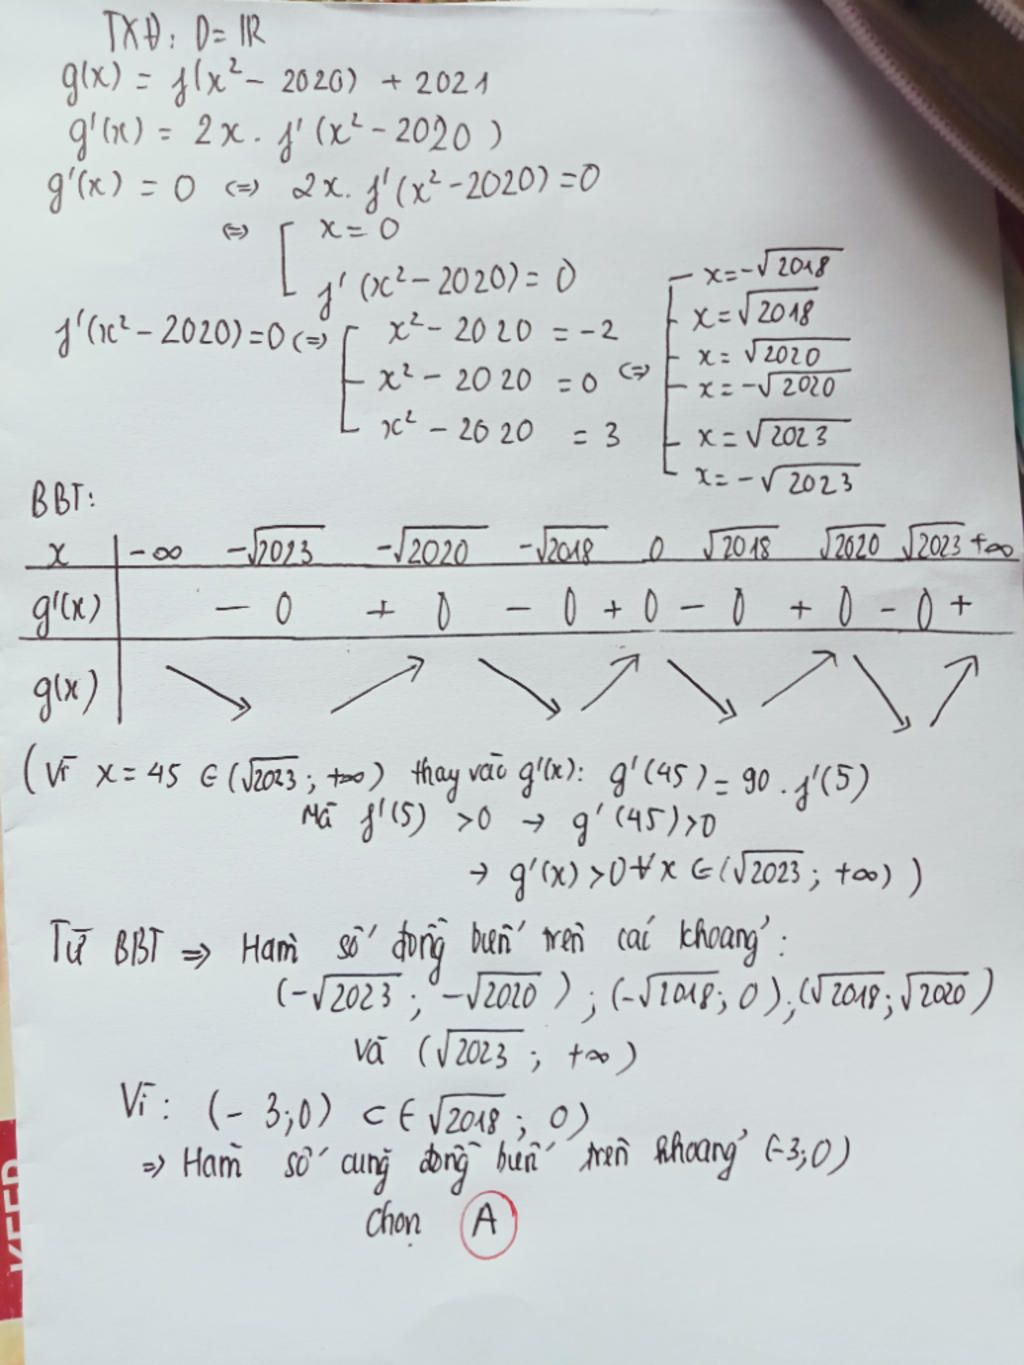 TXĐ: D = IR
g(x) = f(x² - 2020) + 2021
g'(x) = 2x. f'(x² - 2020)
g'(x) = 0 <=> 2x. f'(x² - 2020) = 0
<=> [ x = 0
f'(x² - 2020) = 0
f'(x² - 2020) = 0 <=> [ x² - 2020 = -2
x² - 2020 = 0 <=>
x² - 2020 = 3
x = -√2018
x = √2018
x = √2020
x = -√2020
x = √2023
x = -√2023
BBT:
x | -∞ -√2023 -√2020 -√2018 0 √2018 √2020 √2023 +∞
g'(x) | - 0 + 0 - 0 + 0 - 0 + 0 - 0 +
g(x) | ↘ ↗ ↘ ↗ ↘ ↗ ↘ ↗
(Vì x = 45 ∈ (√2023; +∞) thay vào g'(x): g'(45) = 90. f'(5)
Mà f'(5) > 0 → g'(45) > 0
→ g'(x) > 0 ∀x ∈ (√2023; +∞) )
Từ BBT => Hàm số đồng biến trên các khoảng:
(-√2023; -√2020); (-√2018; 0); (√2018; √2020)
và (√2023; +∞)
Vì: (-3;0) ⊂ (-√2018; 0)
=> Hàm số cũng đồng biến trên khoảng (-3;0)
Chọn A
KEEP